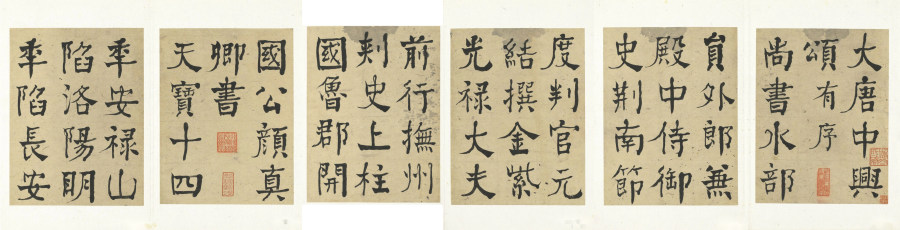 大唐中興
頌有序
尚書水部
員外郎兼
殿中侍御
史荆南節
度判官元
結撰金紫
光禄大夫
前行撫州
刺史上柱
國魯郡開
國公顔真
卿書
天寶十四
年安禄山
陷洛陽明
年陷長安